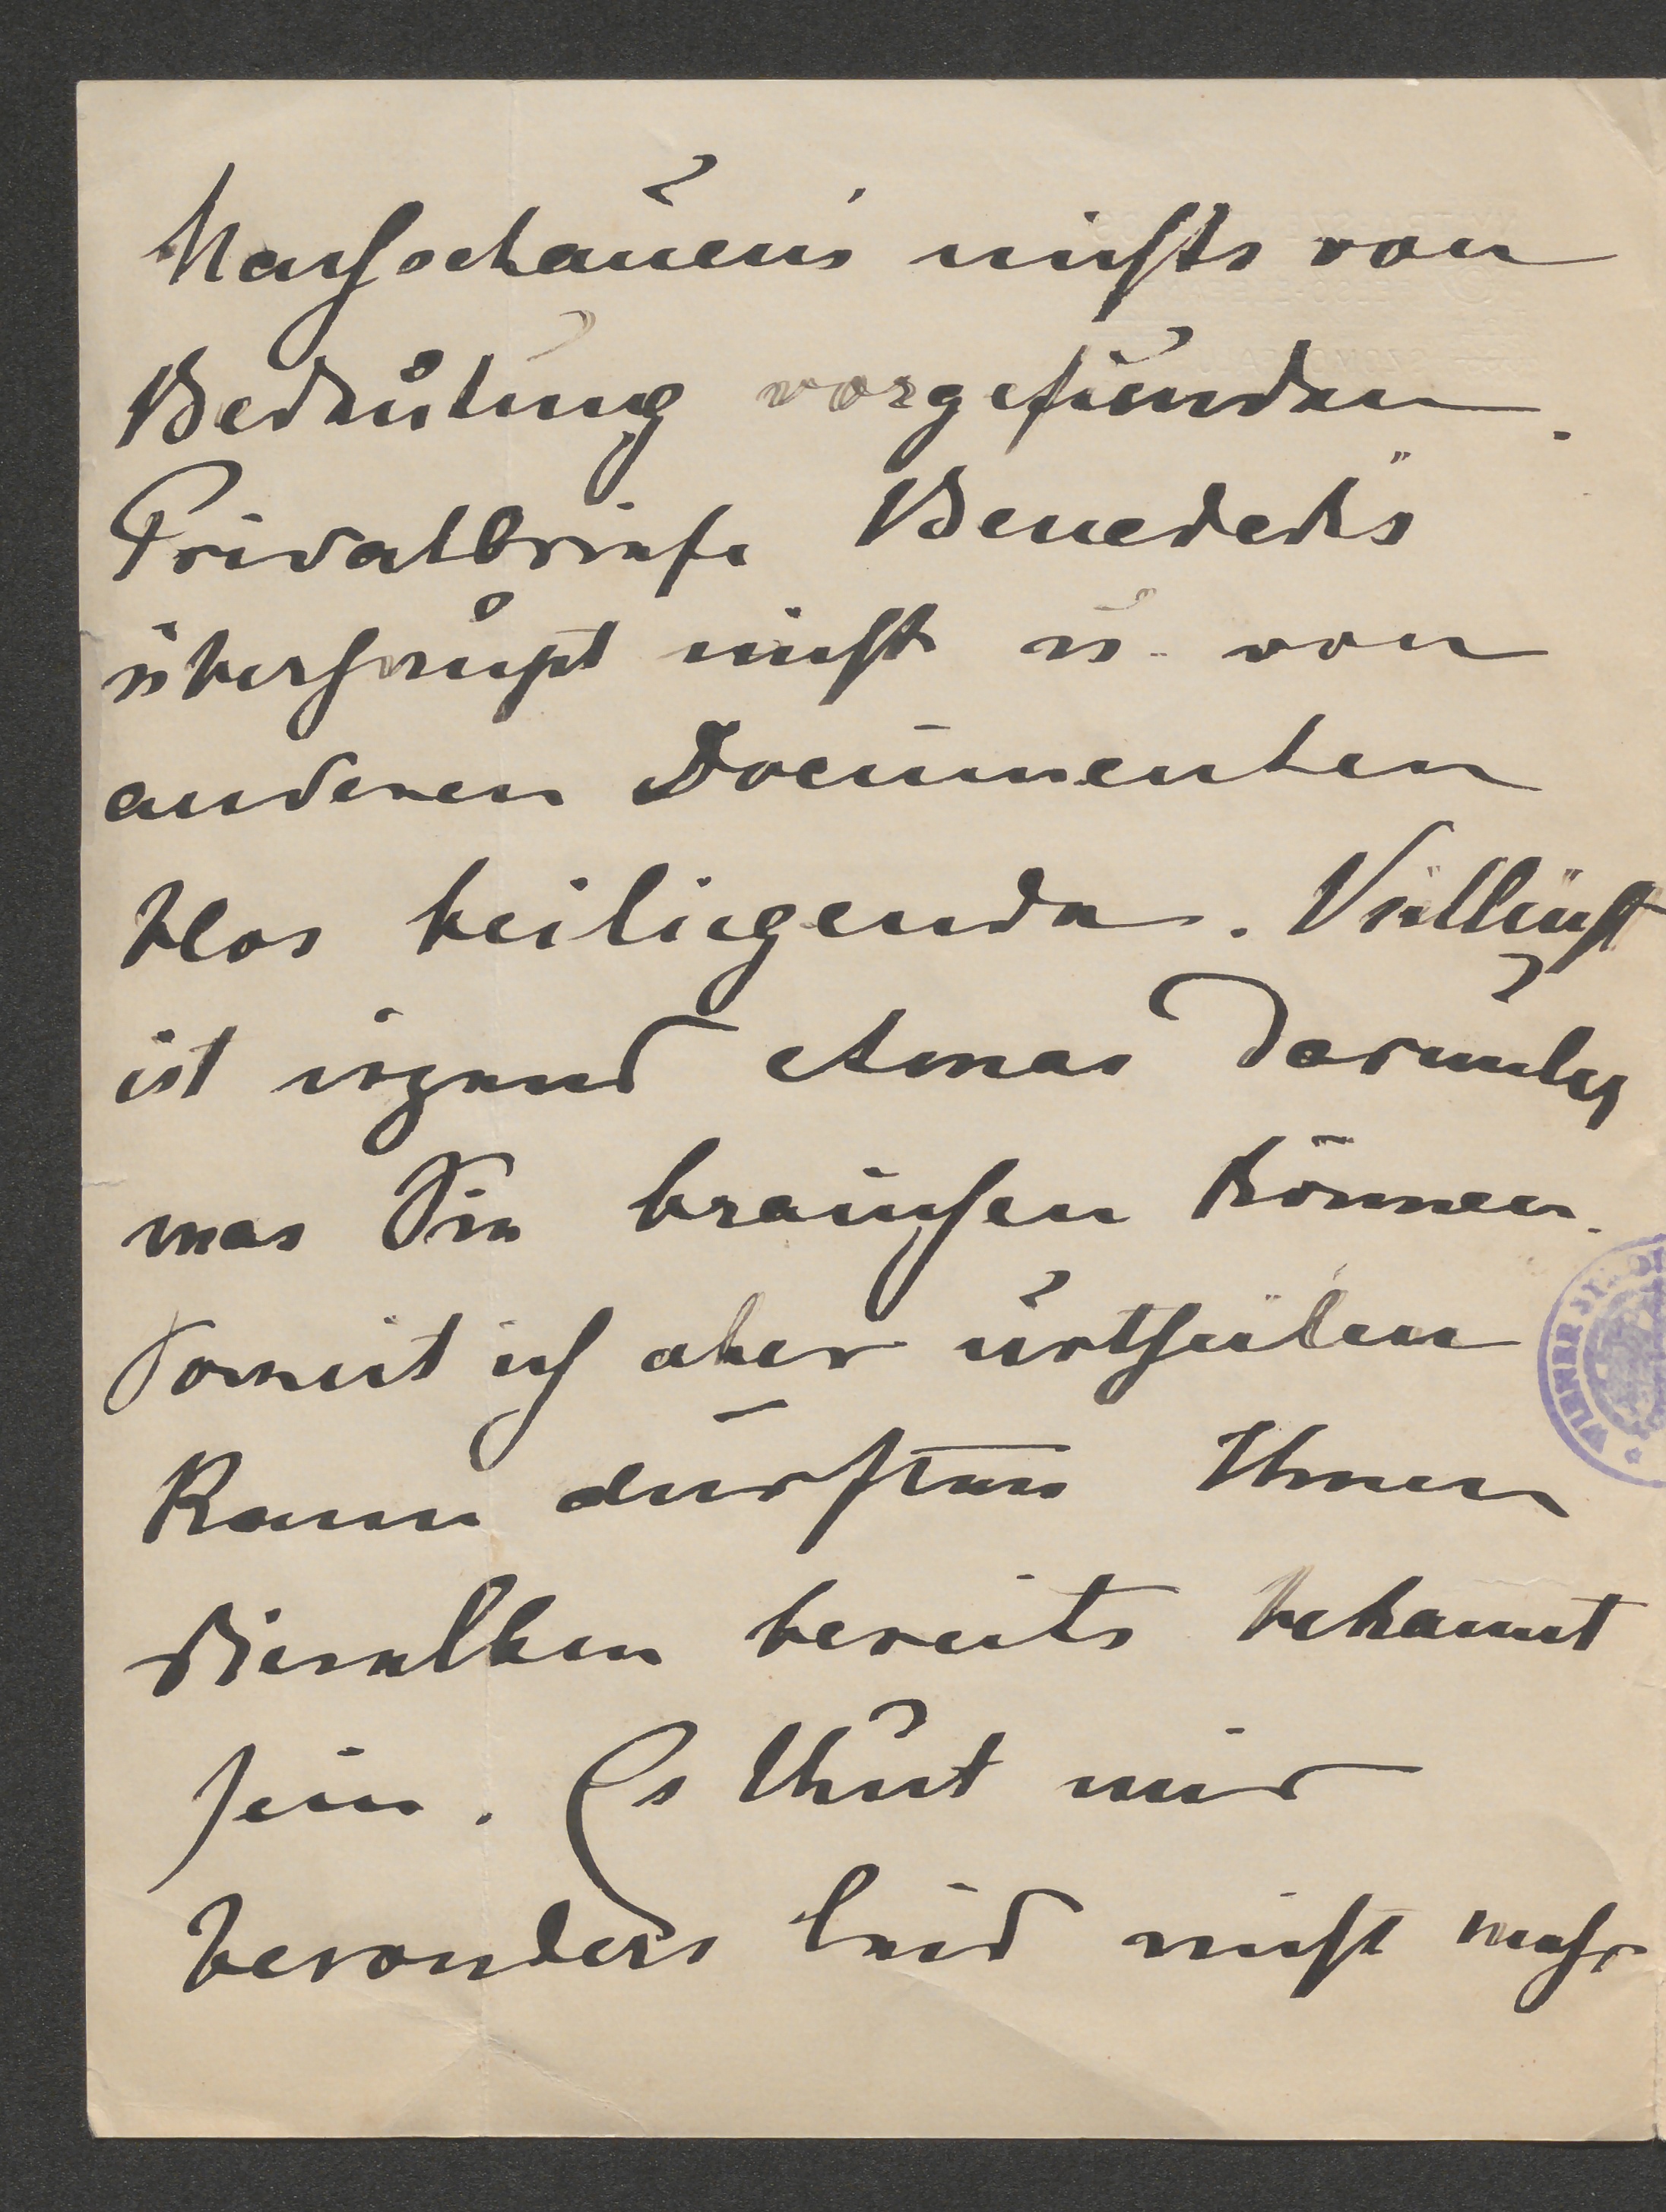 Nachschauens nichts von
Bedeutung vorgefunden.
Privatbriefe Benedek's
überhaupt nicht u. von
anderen Documenten
blos beiliegende. Vielleicht
ist irgend etwas darunter
was Sie brauchen können.
Soweit ich aber urtheilen
kann dürften Ihnen
dieselben bereits bekannt
sein. Es thut mir
besonders leid nicht mehr
WIENER